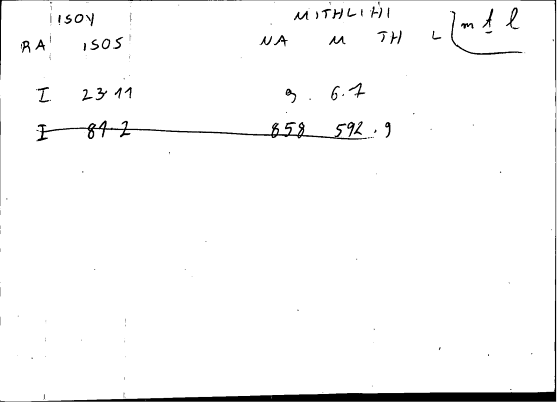 ISOY MITHLIHI
RA ISOS NA M TH L m t l
I 23·11 9 . 6.7
I 81·2 858 592.9